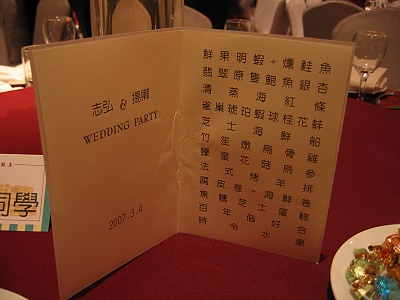 志弘 & 揚瑚
WEDDING PARTY
2007.3.4
鮮果明蝦+燻鮭魚
翡翠原隻鮑魚銀杏
清蒸海紅條
雀巢琥珀蝦球桂花蚌
芝士海鮮船
竹笙燉烏骨雞
鱆皇花菇烏參
法式烤羊排
腐皮卷+海鮮卷
焦糖芝士蛋糕
百年個好合
時令水果
同學